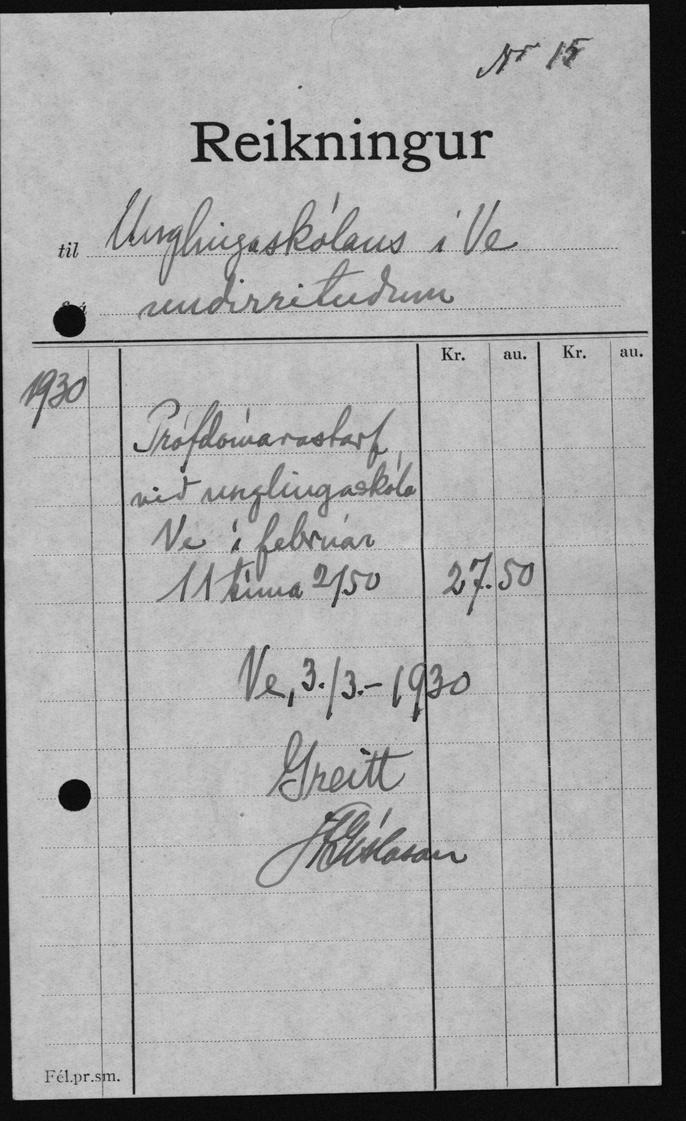 Nr 15
Reikningur
til Unglingaskólans í Ve
undirrituðum
Kr. au. Kr. au.
1930
Prófdómarastarf
við unglingaskóla
Ve í febrúar
11 tíma 2/50 27.50
Ve, 3./3.- 1930
Greitt
Gíslason
Fél.pr.sm.